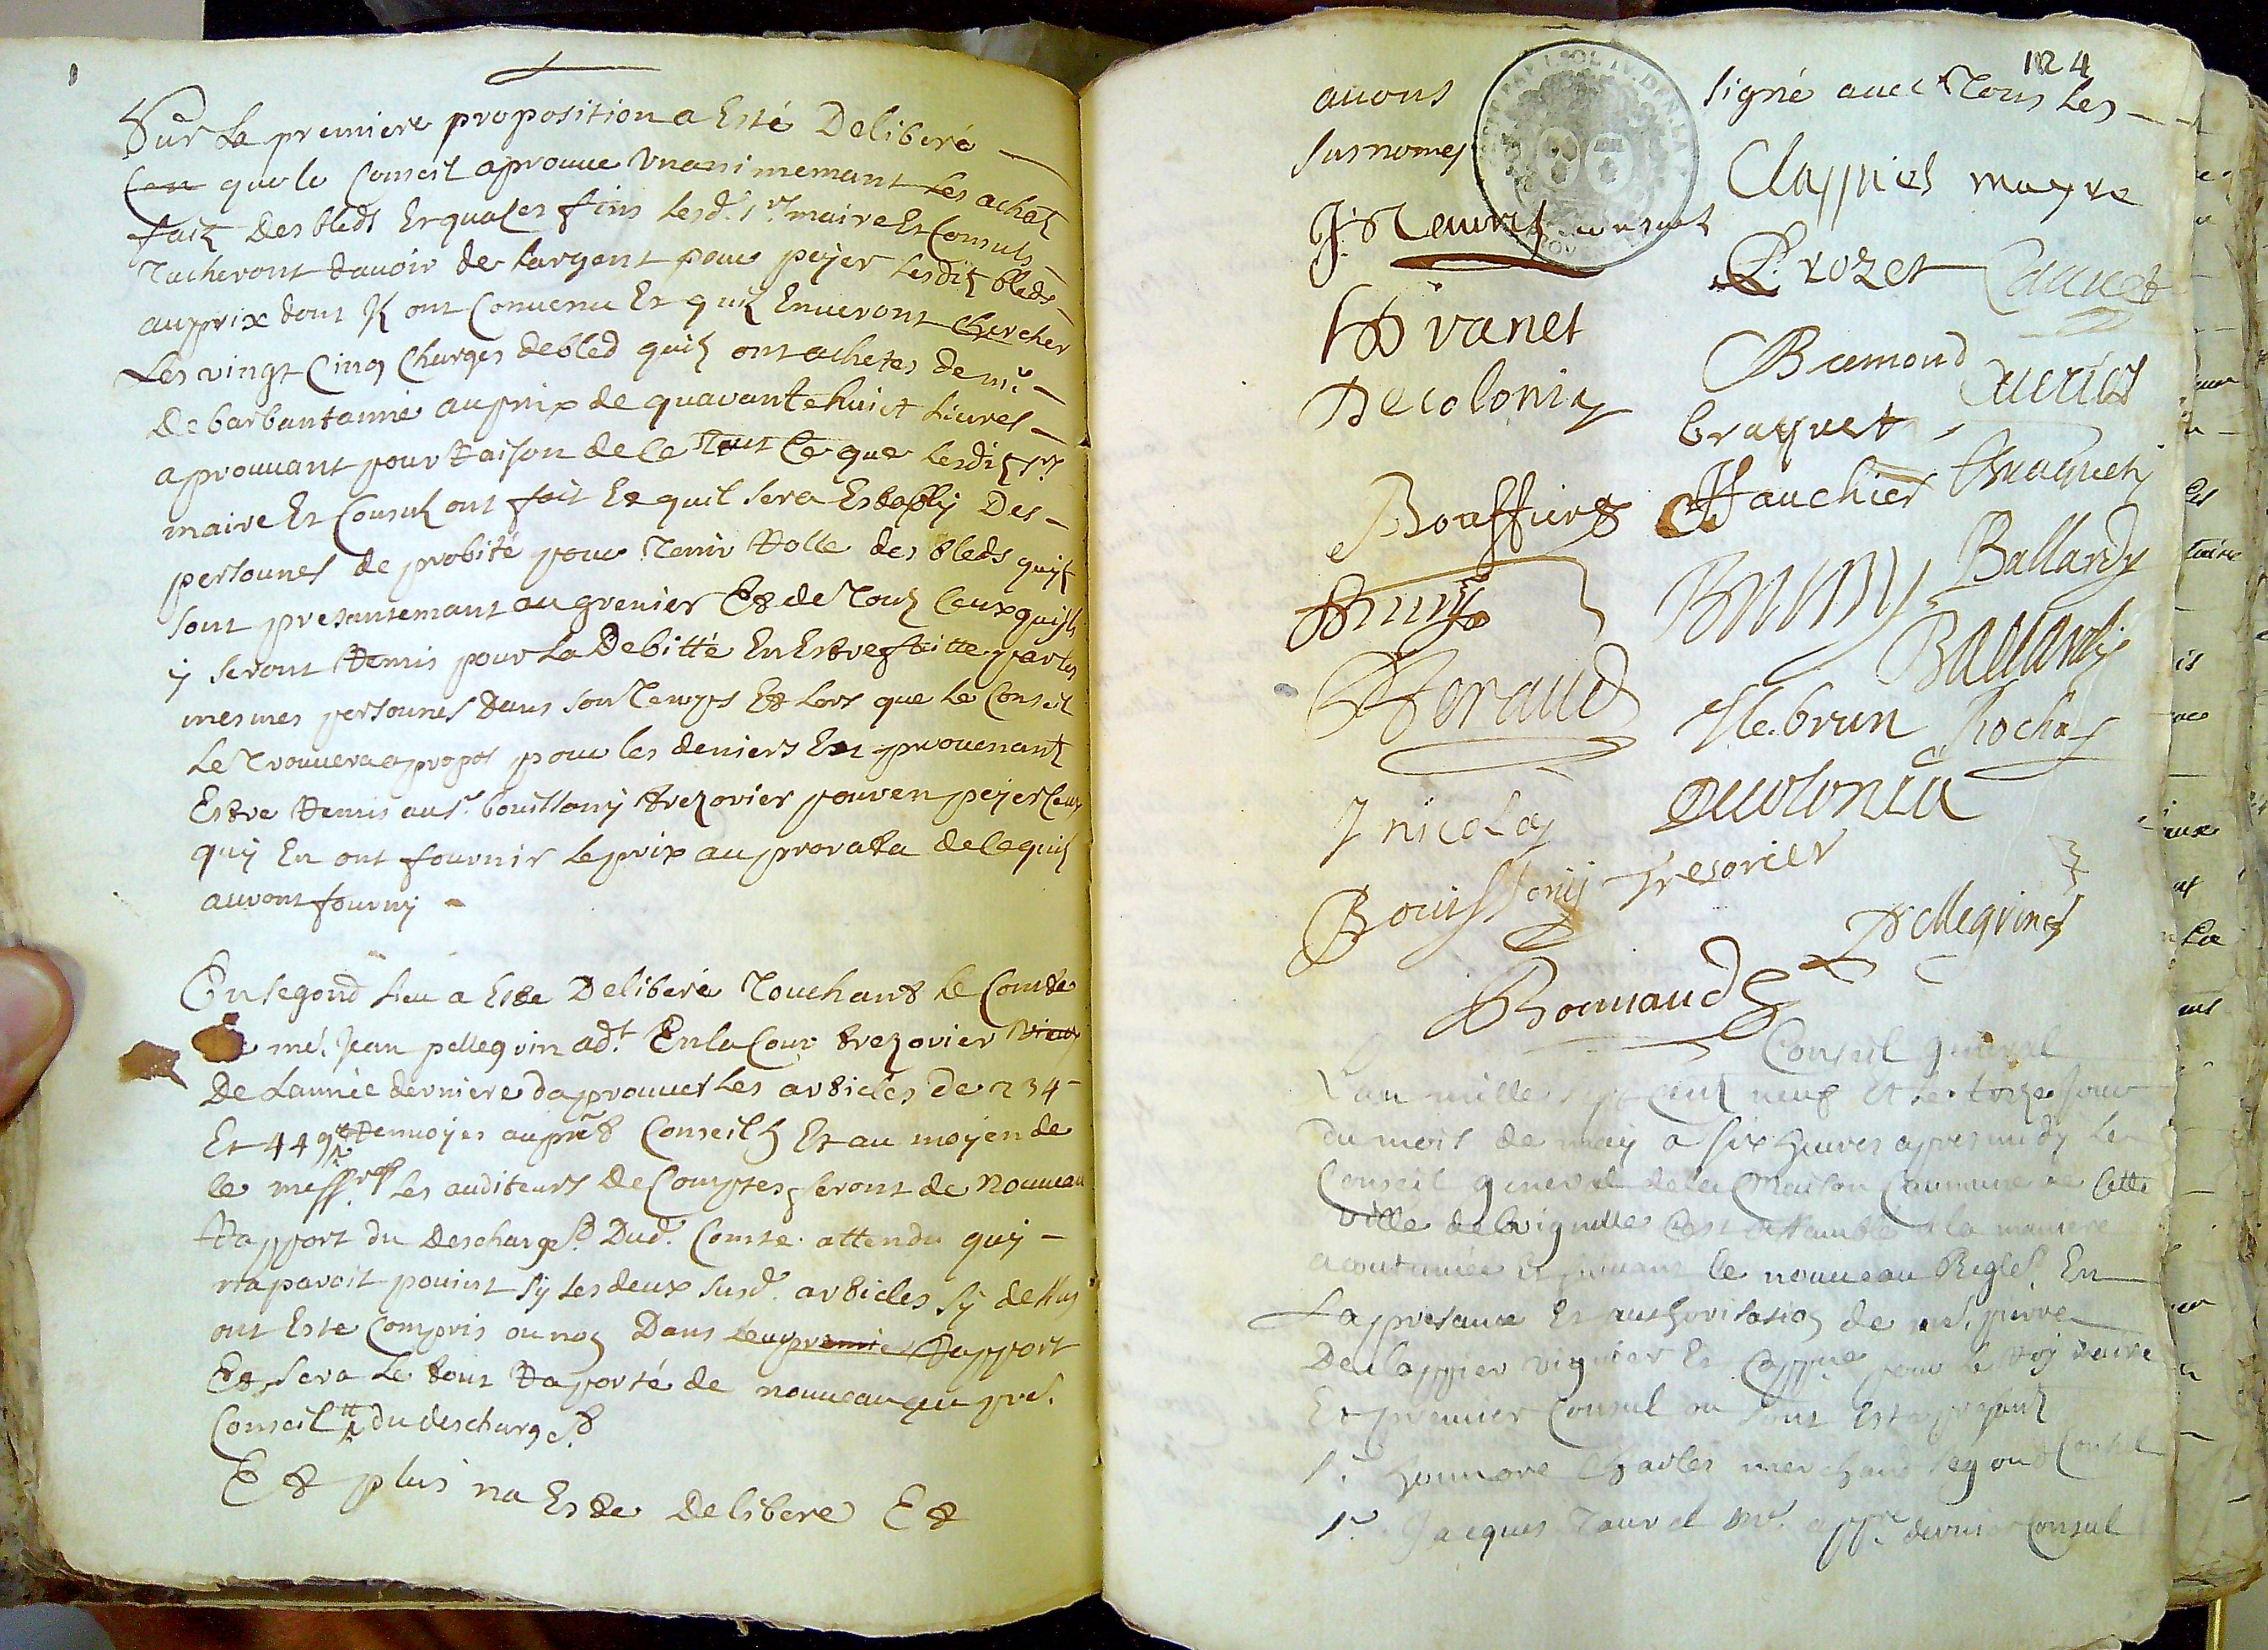 Sur la premiere proposition a Esté Deliberé
que le Conseil aprouue Vnanimemant les achatz
faitz Des bleds Et qua ses fins lesd. srs. maire Et Consuls
Tacheront dauoir de largent pour peyer lesditz bleds
au prix dont jlz ont Conuenu Et quilz Enueront chercher
Les vingt Cinq Charges de bled quilz ont achetes de mr.
De barbantanne au prix de quarante huict liures
aprouuant pour raison de ce Tout Ce que lesditz srs.
maire Et Consulz ont fait Et quil sera Estably Des
personnes de probité pour Tenir rolle des bleds quy
sont presantemant au grenier Et de Tous Ceux quy
y seront remis pour la Debitte En Estre faitte par les
mesmes personnes dans son Temps Et lors que le Conseil
le Trouuera apropos pour les deniers En prouenant
Estre remis au sr. bouissony trezorier pour en peyer Ceux
quy En ont fournir le prix au prorata de ce quilz
auront fourny
En segond lieu a Este Deliberé Touchant le Comte
me. Jean pellegrin adt. En la Cour trezorier vieux
De lannée derniere daprouuer les articles de 234
Et 449 renuoyes au prnt Conseil Et au moyen de
ce messrs. les auditeurs de Comptes seront de nouueau
rapport du descharge Dud. Comte attendu quy
naparoit pouint sy les deux susd. articles sy dessus
ont Este Compris ou non Dans leur premier rapport
Et sera le tout raporté de nouueau au pnt.
Conseil du descharge
Et plus na Este delibere Et
124
auons signé auec Tous les
susnomes
Clappier mayre
J. Neuvy consul
P. rozet Cauuet
vanet
Decolonia
Bremond
braquet
Bouffier
Fauchier Braquety
Brun
Bruny Ballardy
Ballardy
Feraud
H. Le.brun Rocha
J nicolay Decolonia
Bouissony Tresorier
Pellegrin
Romaud
Conseil general
Lan mille sept Centz neuf Et le torze Jour
du mois de may a six heures apres midy le
Conseil general de la Maison Commune de Cette
ville de brignolles Cest assamblé a la maniere
acoutumée Et suiuant le nouueau Reglet. En
La presance Et authorisation de me. pierre
De Clappier viguier Et Cappne. pour le Roy maire
Et premier Consul ou sont Este presantz
sr. honnore Charles merchand segond Consul
sr. Jacques Taurel me. appre. dernier Consul